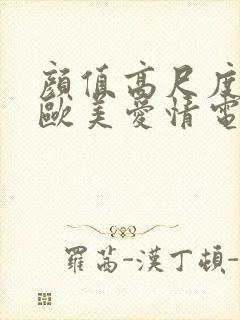 顔值高尺度
歐美愛情電
羅茜-漢丁頓-